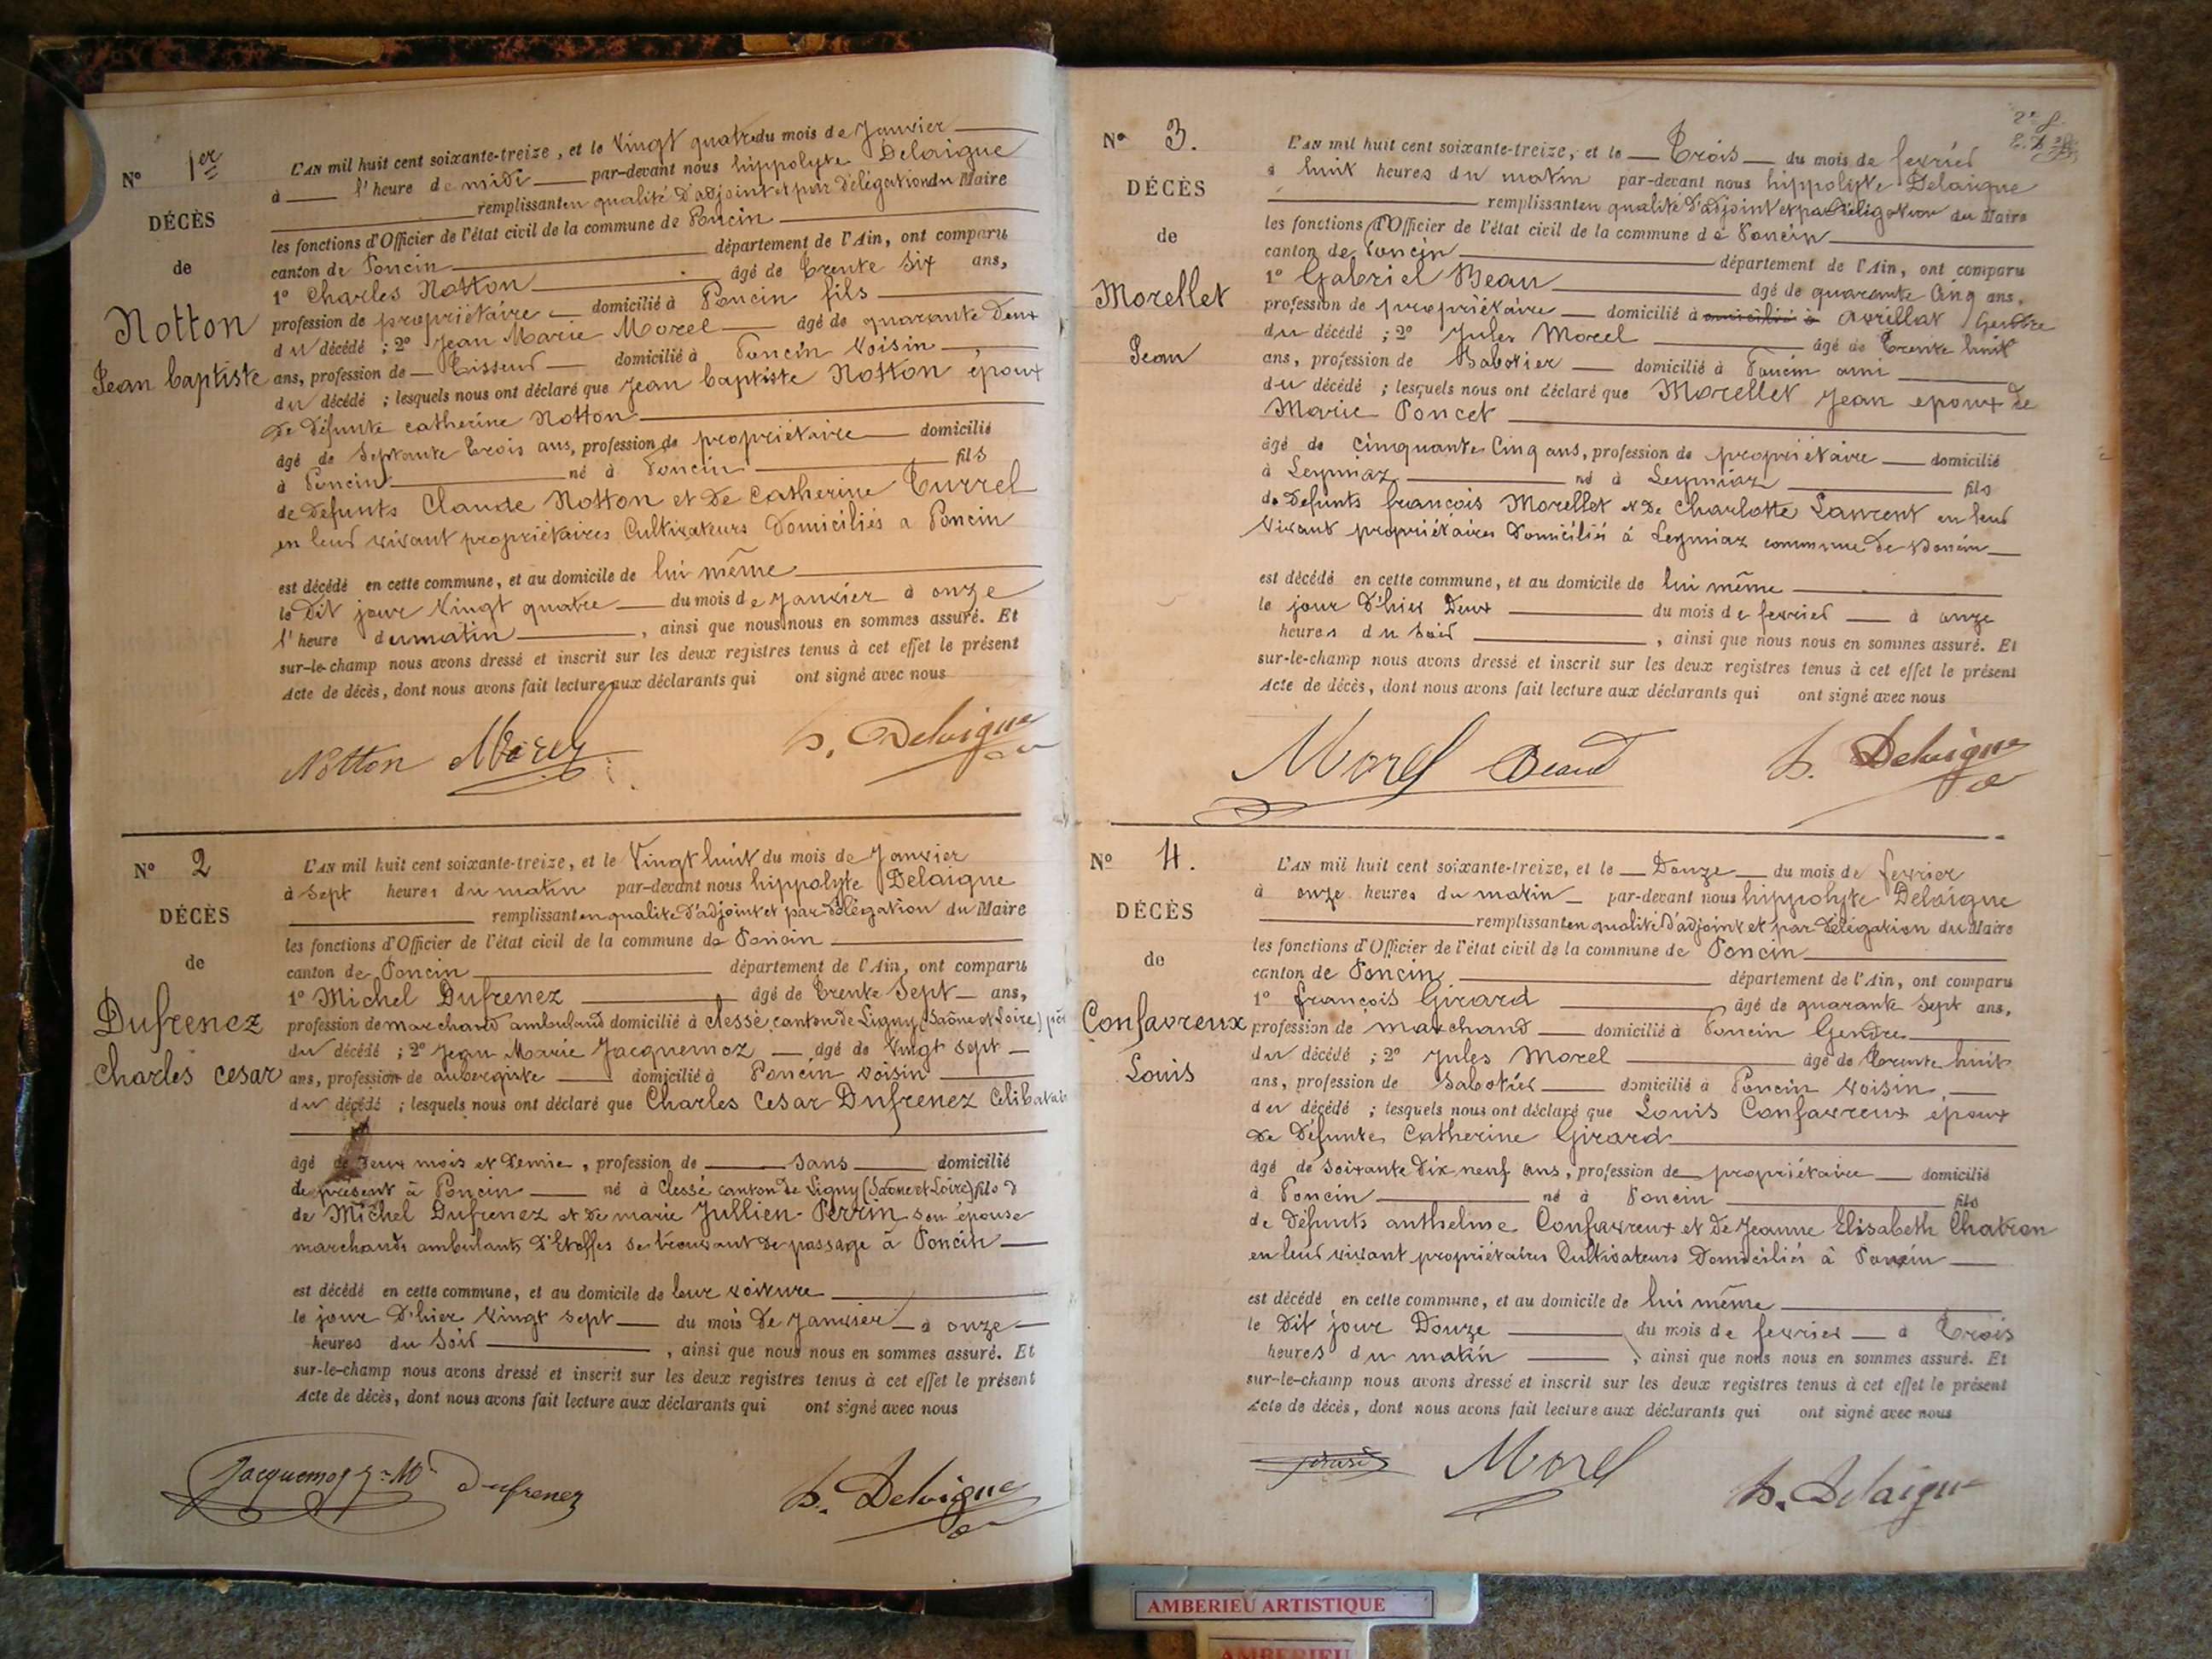 N° 1er
DÉCÈS
de
Notton
Jean baptiste
L'AN mil huit cent soixante-treize, et le Vingt quatre du mois de Janvier
à l'heure de midi par-devant nous hippolyte Delaigue
remplissant en qualité d'adjoint et par délégation du Maire
les fonctions d'Officier de l'état civil de la commune de Poncin
canton de Poncin département de l'Ain, ont comparu
1° Charles Notton âgé de Trente Six ans,
profession de propriétaire domicilié à Poncin fils
du décédé ; 2° Jean Marie Morel âgé de quarante Deux
ans, profession de Tisseur domicilié à Poncin Voisin ,
du décédé ; lesquels nous ont déclaré que Jean baptiste Notton époux
de défunte catherine Notton
âgé de Septante Trois ans, profession de propriétaire domicilié
à Poncin né à Poncin fils
de défunts Claude Notton et de Catherine Turrel
en leur vivant propriétaires Cultivateurs Domiciliés a Poncin
est décédé en cette commune, et au domicile de lui même
le Dit jour Vingt quatre du mois de Janvier à onze
l'heure du matin , ainsi que nous nous en sommes assuré. Et
sur-le-champ nous avons dressé et inscrit sur les deux registres tenus à cet effet le présent
Acte de décès, dont nous avons fait lecture aux déclarants qui ont signé avec nous
Notton Morel h. Delaigue
N° 2
DÉCÈS
de
Dufrenez
Charles Cesar
L'AN mil huit cent soixante-treize, et le Vingt huit du mois de Janvier
à Sept heures du matin par-devant nous hippolyte Delaigue
remplissant en qualité d'adjoint et par délégation du Maire
les fonctions d'Officier de l'état civil de la commune de Poncin
canton de Poncin département de l'Ain, ont comparu
1° Michel Dufrenez âgé de Trente Sept ans,
profession de marchand ambuland domicilié à Clessé canton de Ligny (Saône et Loire) père
du décédé ; 2° Jean Marie Jacquemoz âgé de Vingt Sept
ans, profession de aubergiste domicilié à Poncin voisin
du décédé ; lesquels nous ont déclaré que Charles Cesar Dufrenez Célibataire
âgé de deux mois et Demie, profession de Sans domicilié
de présent à Poncin né à Clessé canton de Ligny (Saône et Loire) fils
de Michel Dufrenez et de marie Jullien Perrin son épouse
marchands ambulants d'Etoffes se trouvant de passage à Poncin
est décédé en cette commune, et au domicile de leur voiture
le jour D'hier Vingt sept du mois De Janvier à onze
heures du Soir , ainsi que nous nous en sommes assuré. Et
sur-le-champ nous avons dressé et inscrit sur les deux registres tenus à cet effet le présent
Acte de décès, dont nous avons fait lecture aux déclarants qui ont signé avec nous
Jacquemoz Dufrenez h. Delaigue
N° 3.
DÉCÈS
de
Morellet
Jean
L'AN mil huit cent soixante-treize, et le Trois du mois de fevrier
à huit heures du matin par-devant nous hippolyte Delaigue
remplissant en qualité d'adjoint et par délégation du Maire
les fonctions d'Officier de l'état civil de la commune de Poncin
canton de Poncin département de l'Ain, ont comparu
1° Gabriel Beau âgé de quarante Cinq ans,
profession de propriétaire domicilié à Avrillat Gendre
du décédé ; 2° Jules Morel âgé de Trente huit
ans, profession de Sabotier domicilié à Poncin ami
du décédé ; lesquels nous ont déclaré que Morellet Jean epoux de
Marie Poncet
âgé de Cinquante Cinq ans, profession de propriétaire domicilié
à Leymiaz né à Leymiaz fils
de Defunts françois Morellet et De Charlotte Laurent en leur
Vivant propriétaires Domiciliés à Leymiaz commune de Poncin
est décédé en cette commune, et au domicile de lui même
le jour D'hier Deux du mois de fevrier à onze
heures du Soir , ainsi que nous nous en sommes assuré. Et
sur-le-champ nous avons dressé et inscrit sur les deux registres tenus à cet effet le présent
Acte de décès, dont nous avons fait lecture aux déclarants qui ont signé avec nous
Morel Beaud h. Delaigue
N° 4.
DÉCÈS
de
Confavreux
Louis
L'AN mil huit cent soixante-treize, et le Douze du mois de fevrier
à onze heures du matin par-devant nous hippolyte Delaigue
remplissant en qualité d'adjoint et par délégation du Maire
les fonctions d'Officier de l'état civil de la commune de Poncin
canton de Poncin département de l'Ain, ont comparu
1° françois Girard âgé de quarante Sept ans,
profession de marchand domicilié à Poncin Gendre
du décédé ; 2° Jules Morel âgé de Trente huit
ans, profession de Sabotier domicilié à Poncin voisin,
du décédé ; lesquels nous ont déclaré que Louis Confavreux époux
De Défunte Catherine Girard
âgé de Soixante Dix neuf ans, profession de propriétaire domicilié
à Poncin né à Poncin fils
de Défunts anthelme Confavreux et de Jeanne Elisabeth Chatron
en leur vivant propriétaires Cultivateurs Domiciliés à Poncin
est décédé en cette commune, et au domicile de lui même
le Dit jour Douze du mois de fevrier à Trois
heures du matin , ainsi que nous nous en sommes assuré. Et
sur-le-champ nous avons dressé et inscrit sur les deux registres tenus à cet effet le présent
Acte de décès, dont nous avons fait lecture aux déclarants qui ont signé avec nous
Morel h. Delaigue
AMBERIEU ARTISTIQUE
AMBERIEU